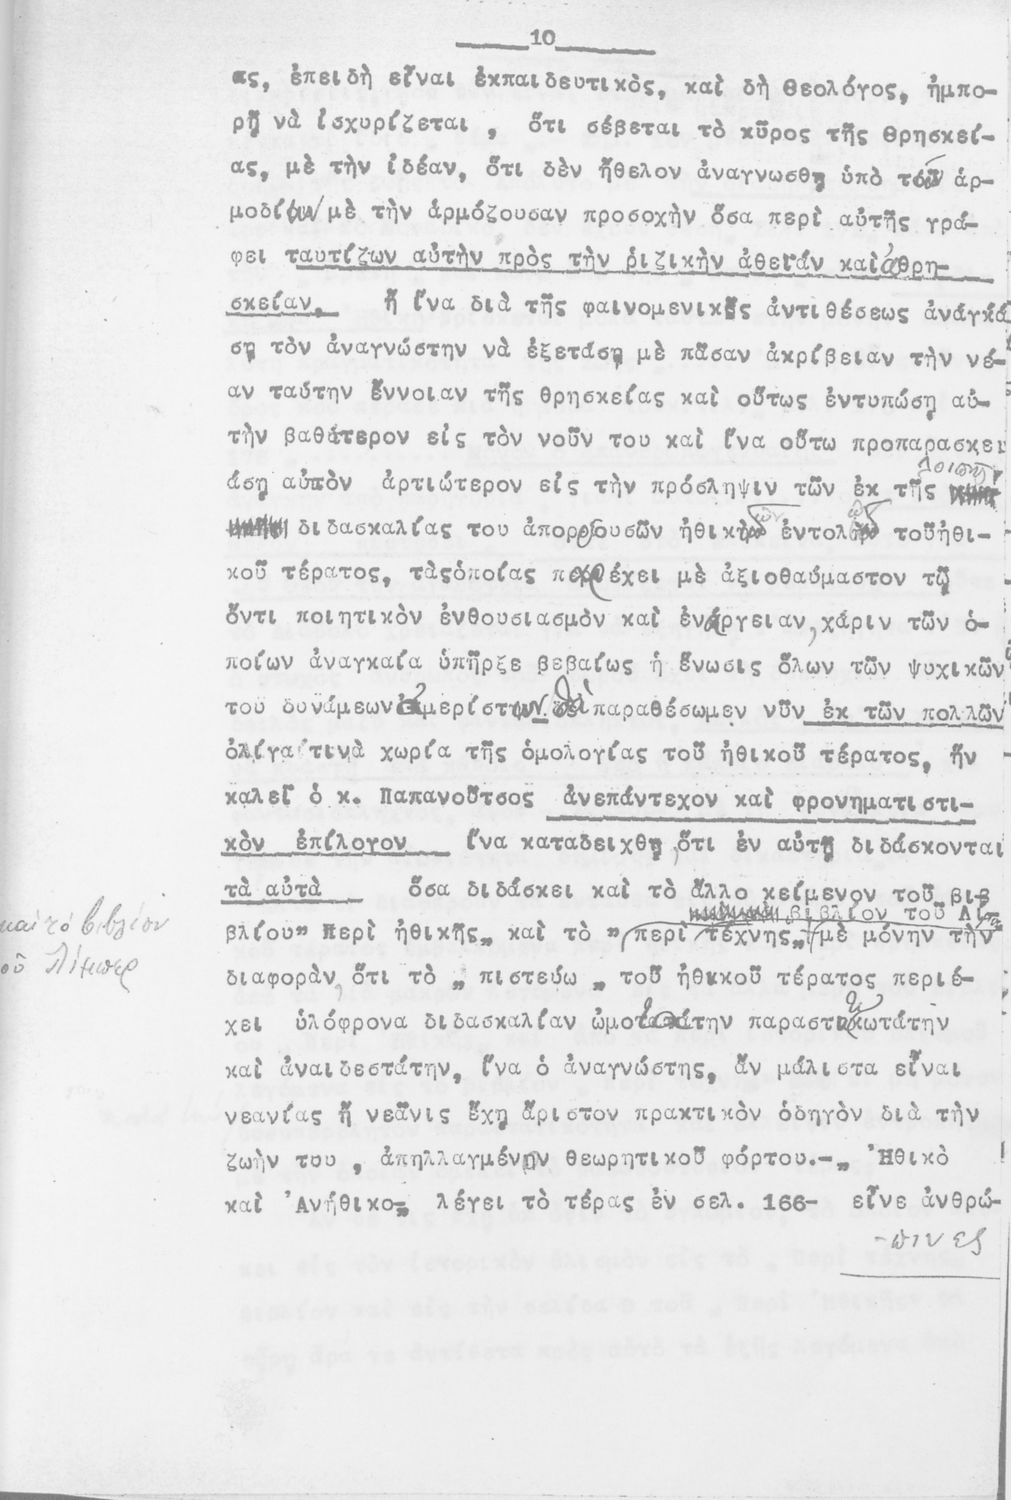 10
ας, ἐπειδὴ εἶναι ἐκπαιδευτικὸς, καὶ δὴ θεολόγος, ἡμπο-
ρῇ νὰ ἰσχυρίζεται , ὅτι σέβεται τὸ κῦρος τῆς θρησκεί-
ας, μὲ τὴν ἰδέαν, ὅτι δὲν ἤθελον ἀναγνωσθῃ ὑπὸ τῶν ἁρ-
μοδίων μὲ τὴν ἁρμόζουσαν προσοχὴν ὅσα περὶ αὐτῆς γρά-
φει ταυτίζων αὐτὴν πρὸς τὴν ῥιζικὴν ἀθεΐαν καὶ ἀθρη-
σκείαν, ἢ ἵνα διὰ τῆς φαινομενικῆς ἀντιθέσεως ἀναγκά
σῃ τὸν ἀναγνώστην νὰ ἐξετάσῃ μὲ πᾶσαν ἀκρίβειαν τὴν νέ-
αν ταύτην ἔννοιαν τῆς θρησκείας καὶ οὕτως ἐντυπώσῃ αὐ-
τὴν βαθύτερον εἰς τὸν νοῦν του καὶ ἵνα οὕτω προπαρασκει
άσῃ αὐτὸν ἀρτιώτερον εἰς τὴν πρόσληψιν τῶν ἐκ τῆς λοιπῆς
διδασκαλίας του ἀπορρεουσῶν ἠθικῶν ἐντολῶν τοῦ ἠθι-
κοῦ τέρατος, τὰς ὁποίας παρέχει μὲ ἀξιοθαύμαστον τῷ
ὄντι ποιητικὸν ἐνθουσιασμὸν καὶ ἐνάργειαν, χάριν τῶν ὁ-
ποίων ἀναγκαία ὑπῆρξε βεβαίως ἡ ἕνωσις ὅλων τῶν ψυχικῶν
του δυνάμεων ἀμερίστων. Θὰ παραθέσωμεν νῦν ἐκ τῶν πολλῶν
ὀλίγα τινὰ χωρία τῆς ὁμολογίας τοῦ ἠθικοῦ τέρατος, ἣν
καλεῖ ὁ κ. Παπανοῦτσος ἀνεπάντεχον καὶ φρονηματιστι-
κὸν ἐπίλογον ἵνα καταδειχθῇ, ὅτι ἐν αὐτῇ διδάσκονται
τὰ αὐτὰ ὅσα διδάσκει καὶ τὸ ἄλλο κείμενον τοῦ βιβ
βιβλίον τοῦ Λί
βλίου" Περὶ ἠθικῆς„ καὶ τὸ "περὶ τέχνης„ μὲ μόνην τὴν
καὶ τὸ βιβλίον
οῦ Λίμπερ
διαφορὰν, ὅτι τὸ „ πιστεύω „ τοῦ ἠθικοῦ τέρατος περιέ-
χει ὑλόφρονα διδασκαλίαν ὠμοτάτην παραστικωτάτην
καὶ ἀναιδεστάτην, ἵνα ὁ ἀναγνώστης, ἂν μάλιστα εἶναι
νεανίας ἢ νεᾶνις ἔχῃ ἄριστον πρακτικὸν ὁδηγὸν διὰ τὴν
ζωὴν του , ἀπηλλαγμένον θεωρητικοῦ φόρτου.-„ Ἠθικὸ
καὶ Ἀνήθικο-„ λέγει τὸ τέρας ἐν σελ. 166- εἶνε ἀνθρώ-
-πινες